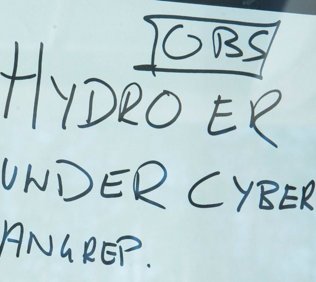 OBS
HYDRO ER
UNDER CYBER
ANGREP.